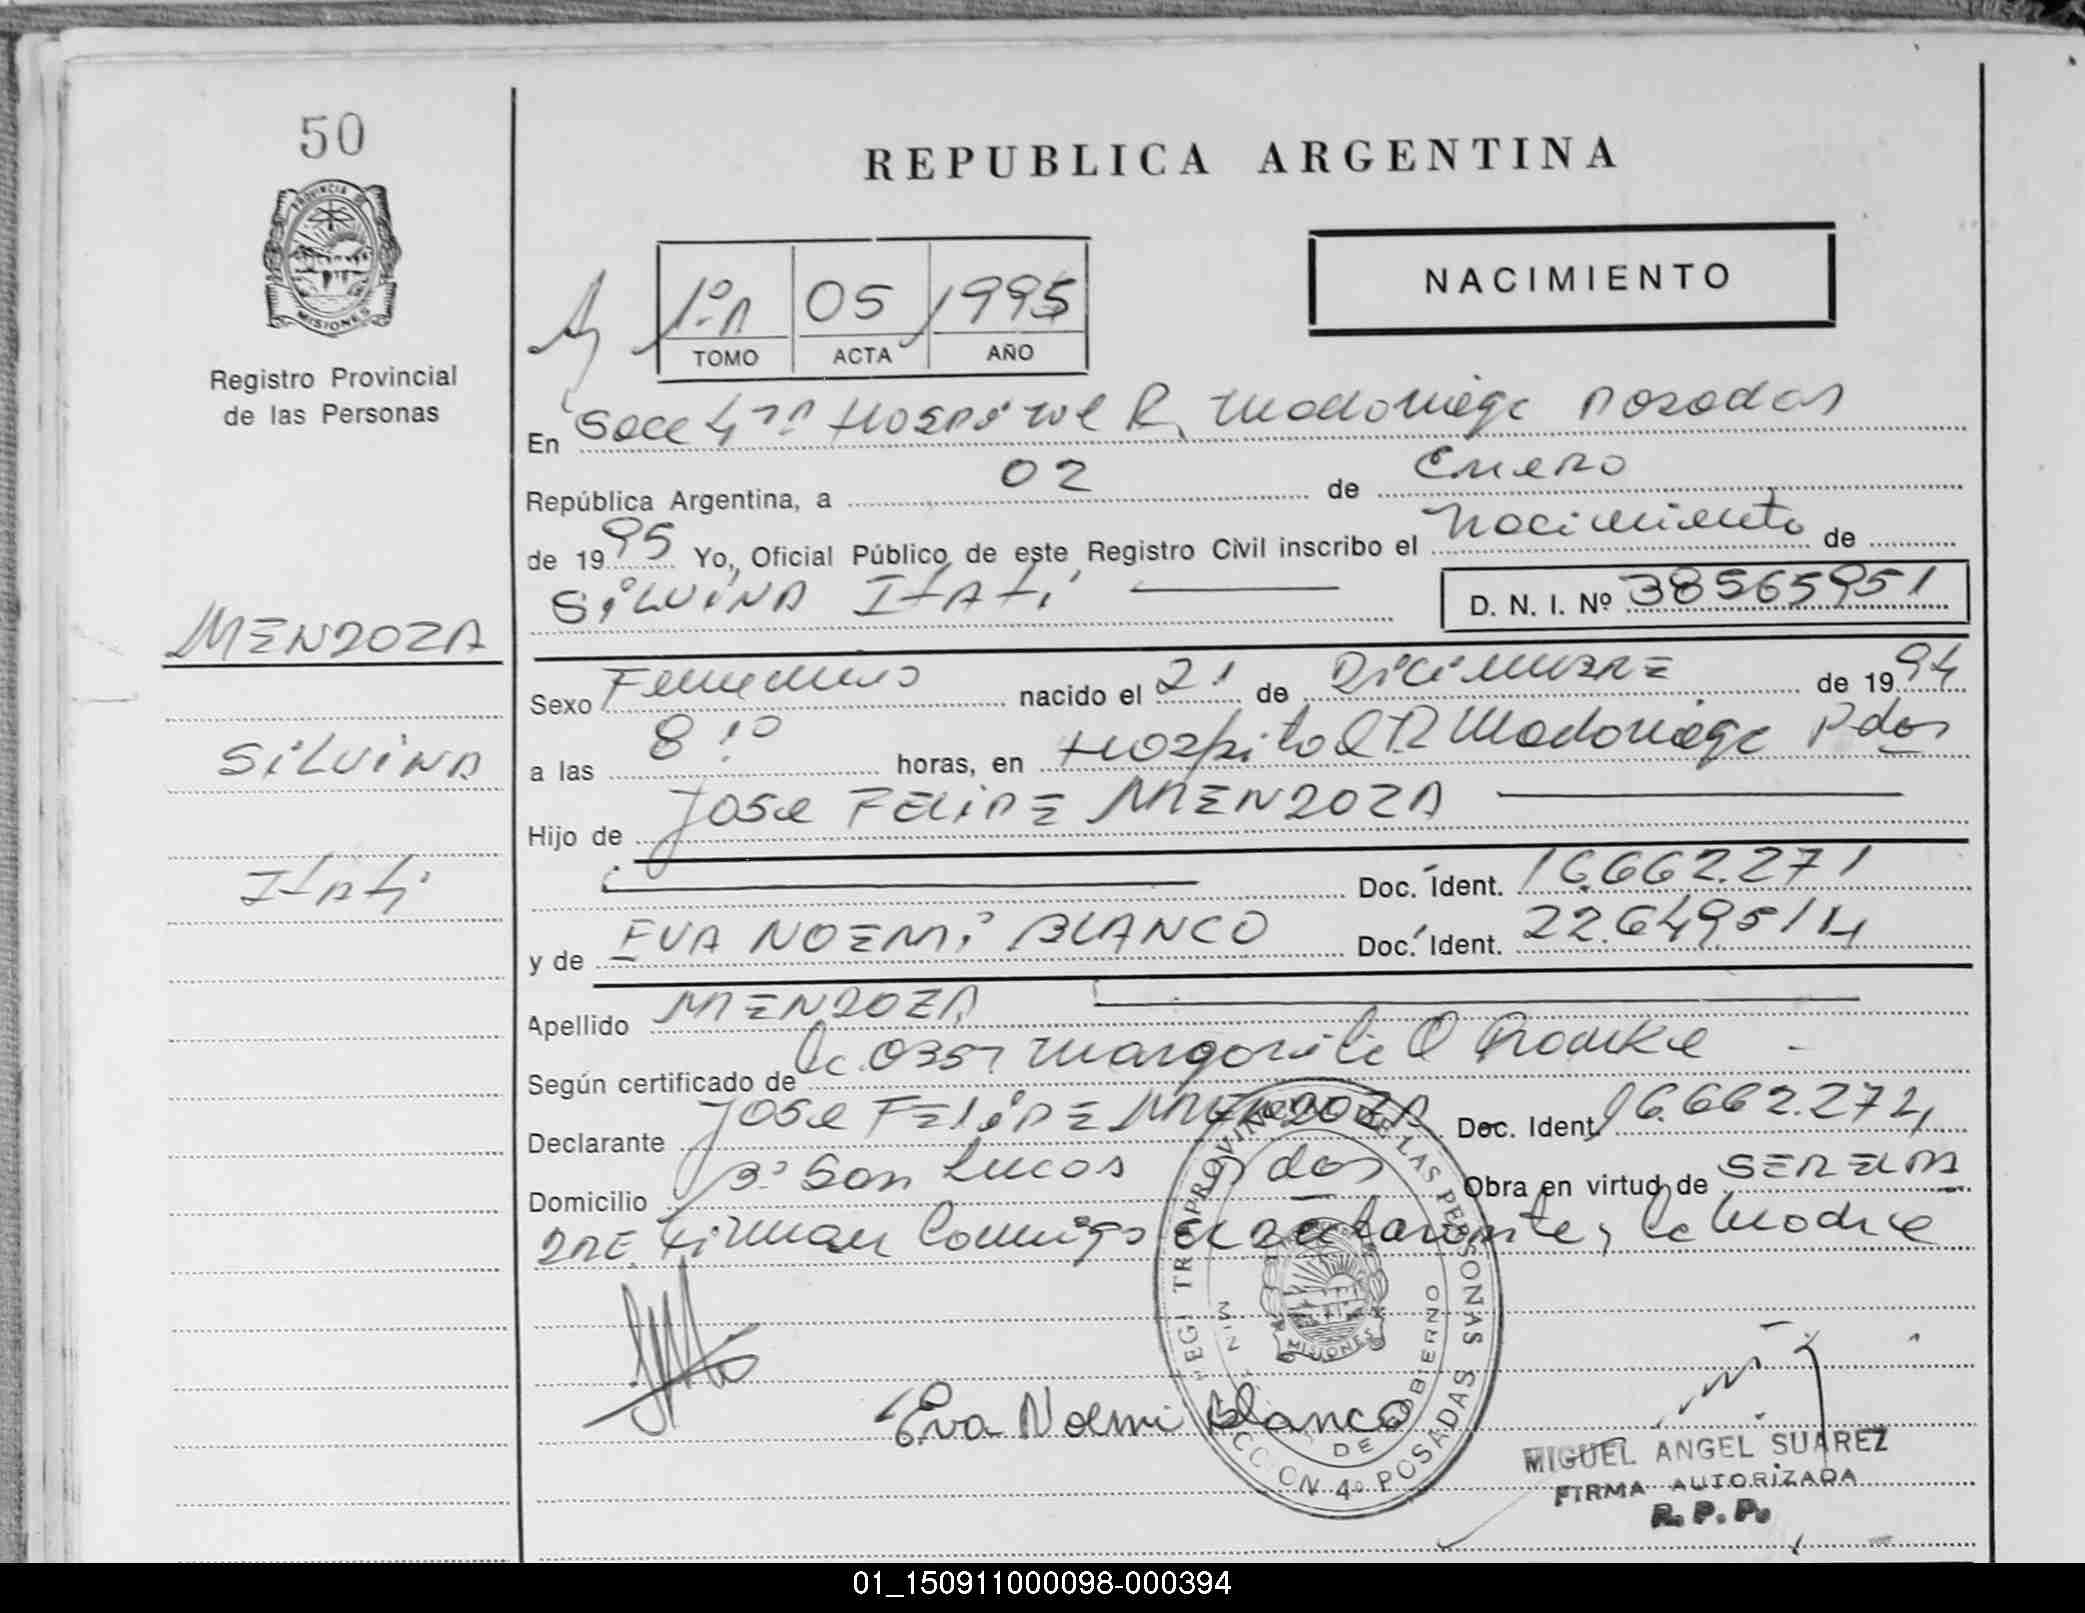 50
PROVINCIA DE
MISIONES
Registro Provincial
de las Personas
MENDOZA
Silvina
Itatí
REPUBLICA ARGENTINA
NACIMIENTO
1º 05 1995
TOMO ACTA AÑO
En Secc 4ta Hospital R. Madariaga Posadas
República Argentina, a 02 de Enero
de 1995 Yo, Oficial Público de este Registro Civil inscribo el Nacimiento de
Silvina Itatí D. N. I. Nº 38565951
Sexo Femenino nacido el 21 de Diciembre de 1994
a las 8 10 horas, en Hospital R Madariaga Pdas
Hijo de Jose Felipe MENDOZA
Doc. Ident. 16.662.271
y de EVA NOEMí BLANCO Doc. Ident. 22.649514
Apellido MENDOZA
Según certificado de
Declarante Jose Felipe MENDOZA Doc. Ident. 16.662.272,
Domicilio Bº San Lucas Pdas Obra en virtud de SER EL PA
DRE. Firman Conmigo el declarante, la Madre
Eva Noemi Blanco
REGISTRO PROVINCIAL DE LAS PERSONAS
SECCION 4º POSADAS
DE GOBIERNO
MISIONES
MIGUEL ANGEL SUAREZ
FIRMA AUTORIZADA
R. P. P.
01_150911000098-000394